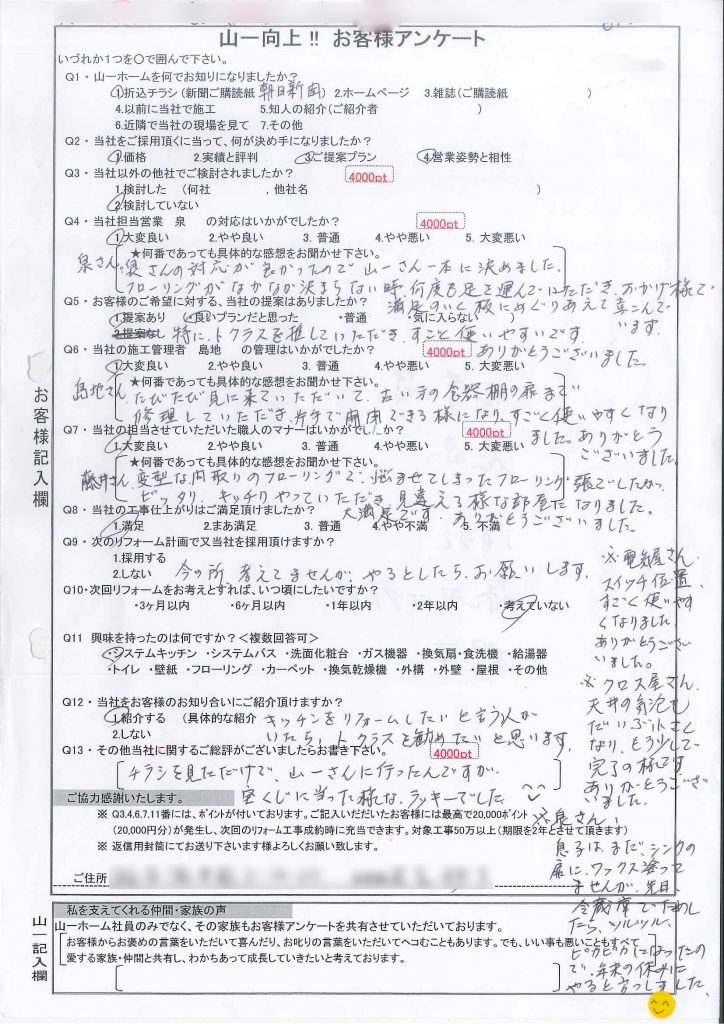 山一向上!! お客様アンケート
いづれか1つを〇で囲んで下さい。
Q1・山一ホームを何でお知りになりましたか?
1.折込チラシ(新聞ご購読紙 朝日新聞) 2.ホームページ 3.雑誌(ご購読紙 )
4.以前に当社で施工 5.知人の紹介(ご紹介者 )
6.近隣で当社の現場を見て 7.その他
Q2・当社をご採用頂くに当って、何が決め手になりましたか?
1.価格 2.実績と評判 3.ご提案プラン 4.営業姿勢と相性
Q3・当社以外の他社でご検討されましたか? 4000pt
1.検討した (何社 , 他社名 )
2.検討していない
Q4・当社担当営業 泉 の対応はいかがでしたか? 4000pt
1.大変良い 2.やや良い 3.普通 4.やや悪い 5.大変悪い
★何番であっても具体的な感想をお聞かせ下さい。
泉さん:泉さんの対応が良かったので山一さん一本に決めました。
フローリングがなかなか決まらない時、何度も足を運んでいただき、おかげ様で
満足すいく板にめぐりあえて喜こんで
います。
Q5・お客様のご希望に対する、当社の提案はありましたか?
1.提案あり (・良いプランだと思った ・普通 ・気に入らない )
2.提案なし 特に、トクラスを推していただき、すごく使いやすいです。
ありがとうございました。
Q6・当社の施工管理者 島地 の管理はいかがでしたか? 4000pt
1.大変良い 2.やや良い 3.普通 4.やや悪い 5.大変悪い
★何番であっても具体的な感想をお聞かせ下さい。
島地さん たびたび見に来ていただいて、古い方の食器棚の扉まで
修理していただき、片手で開閉できる様になり、すごく使いやすくなり
ました。ありがとう
ございました。
Q7・当社の担当させていただいた職人のマナーはいかがでしたか? 4000pt
1.大変良い 2.やや良い 3.普通 4.やや悪い 5.大変悪い
★何番であっても具体的な感想をお聞かせ下さい。
藤井さん 変型な間取りのフローリングで、悩ませてしまったフローリング張でしたが、
ピッタリ、キッチリやっていただき、見違える様な部屋になりました。
大満足です。ありがとうございました。
Q8・当社の工事仕上がりはご満足頂けましたか?
1.満足 2.まあ満足 3.普通 4.やや不満 5.不満
Q9・次のリフォーム計画で又当社を採用頂けますか?
1.採用する
2.しない 今の所、考えてませんが、やるとしたら、お願いします。
Q10・次回リフォームをお考えとすれば、いつ頃にしたいですか?
・3ヶ月以内 ・6ヶ月以内 ・1年以内 ・2年以内 ・考えていない
Q11 興味を持ったのは何ですか?<複数回答可>
・システムキッチン ・システムバス ・洗面化粧台 ・ガス機器 ・換気扇・食洗機 ・給湯器
・トイレ ・壁紙 ・フローリング ・カーペット ・換気乾燥機 ・外構 ・外壁 ・屋根 ・その他
Q12・当社をお客様のお知り合いにご紹介頂けますか?
1.紹介する (具体的な紹介 キッチンをリフォームしたいと言う人が
2.しない いたら、トクラスを勧めたいと思います。
Q13・その他当社に関するご総評がございましたらお書き下さい。 4000pt
チラシを見ただけで、山一さんに行ったんですが、
宝くじに当った様な、ラッキーでした
ご協力感謝いたします。
※ Q3.4.6.7.11番には、ポイントが付いております。ご記入いただいたお客様には最高で20,000ポイント
(20,000円分)が発生し、次回のリフォーム工事成約時に充当できます。対象工事50万以上(期限を2年とさせて頂きます)
※ 返信用封筒にてお送り下さいます様よろしくお願い致します。
ご住所
※電気屋さん、
スイッチ位置、
すごく使いやす
くなりました。
ありがとうござい
ました。
※クロス屋さん、
天井の気泡も
だいぶ小さく
なり、もう少しで
完了の様です。
ありがとうござい
ました。
※泉さん、
息子は、まだ、シンクの
扉に、ワックス塗って
ませんが、先日
冷蔵庫でためし
たら、ツルツル、
ピカピカになったの
で、年末の休みに
やると言ってました。
お客様記入欄
私を支えてくれる仲間・家族の声
山一ホーム社員のみでなく、その家族もお客様アンケートを共有させていただいております。
お客様からお褒めの言葉をいただいて喜んだり、お叱りの言葉をいただいてヘコむこともあります。でも、いい事も悪いこともすべて
愛する家族・仲間と共有し、わかちあって成長していきたいと考えております。
山一記入欄